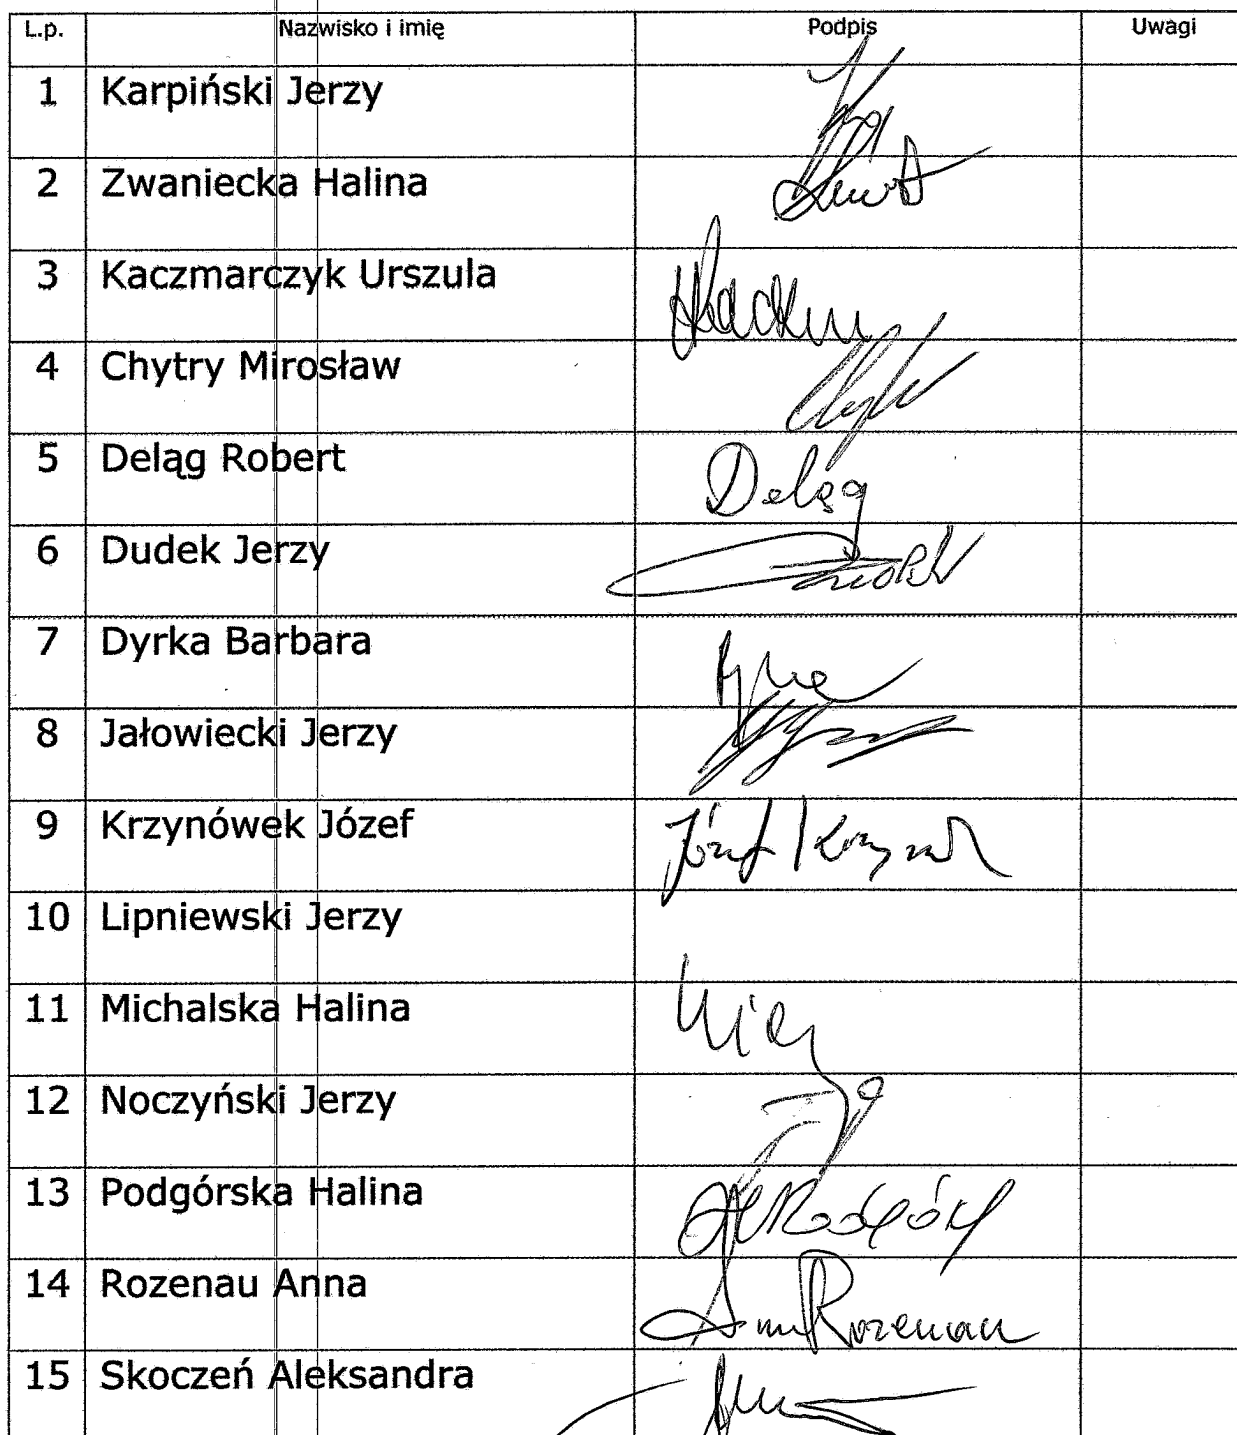 L.p. Nazwisko i imię Podpis Uwagi
1 Karpiński Jerzy
2 Zwaniecka Halina
3 Kaczmarczyk Urszula
4 Chytry Mirosław
5 Deląg Robert Deląg
6 Dudek Jerzy
7 Dyrka Barbara
8 Jałowiecki Jerzy
9 Krzynówek Józef Józef
10 Lipniewski Jerzy
11 Michalska Halina
12 Noczyński Jerzy
13 Podgórska Halina
14 Rozenau Anna Rozenau
15 Skoczeń Aleksandra